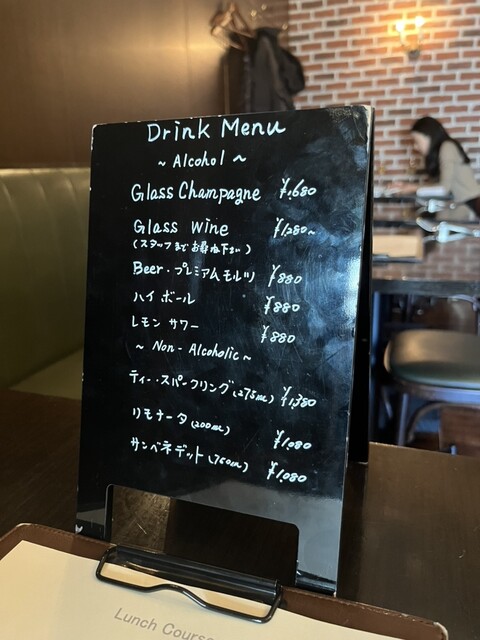 Drink Menu
~ Alcohol ~
Glass Champagne ¥1,680
Glass wine ¥1,280~
(スタッフまでお尋ね下さい)
Beer・プレミアムモルツ ¥880
ハイボール ¥880
レモンサワー ¥880
~ Non-Alcoholic ~
ティー・スパークリング(275ml) ¥1,380
リモナータ(200ml) ¥1,080
サンベネデット(750ml) ¥1,080
Lunch Course